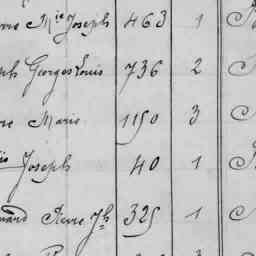 Mie Joseph 463 1
ph Georges Louis 736 2
re Marie 1150 3
Joseph 40 1
nard Pierre Jh 325 1